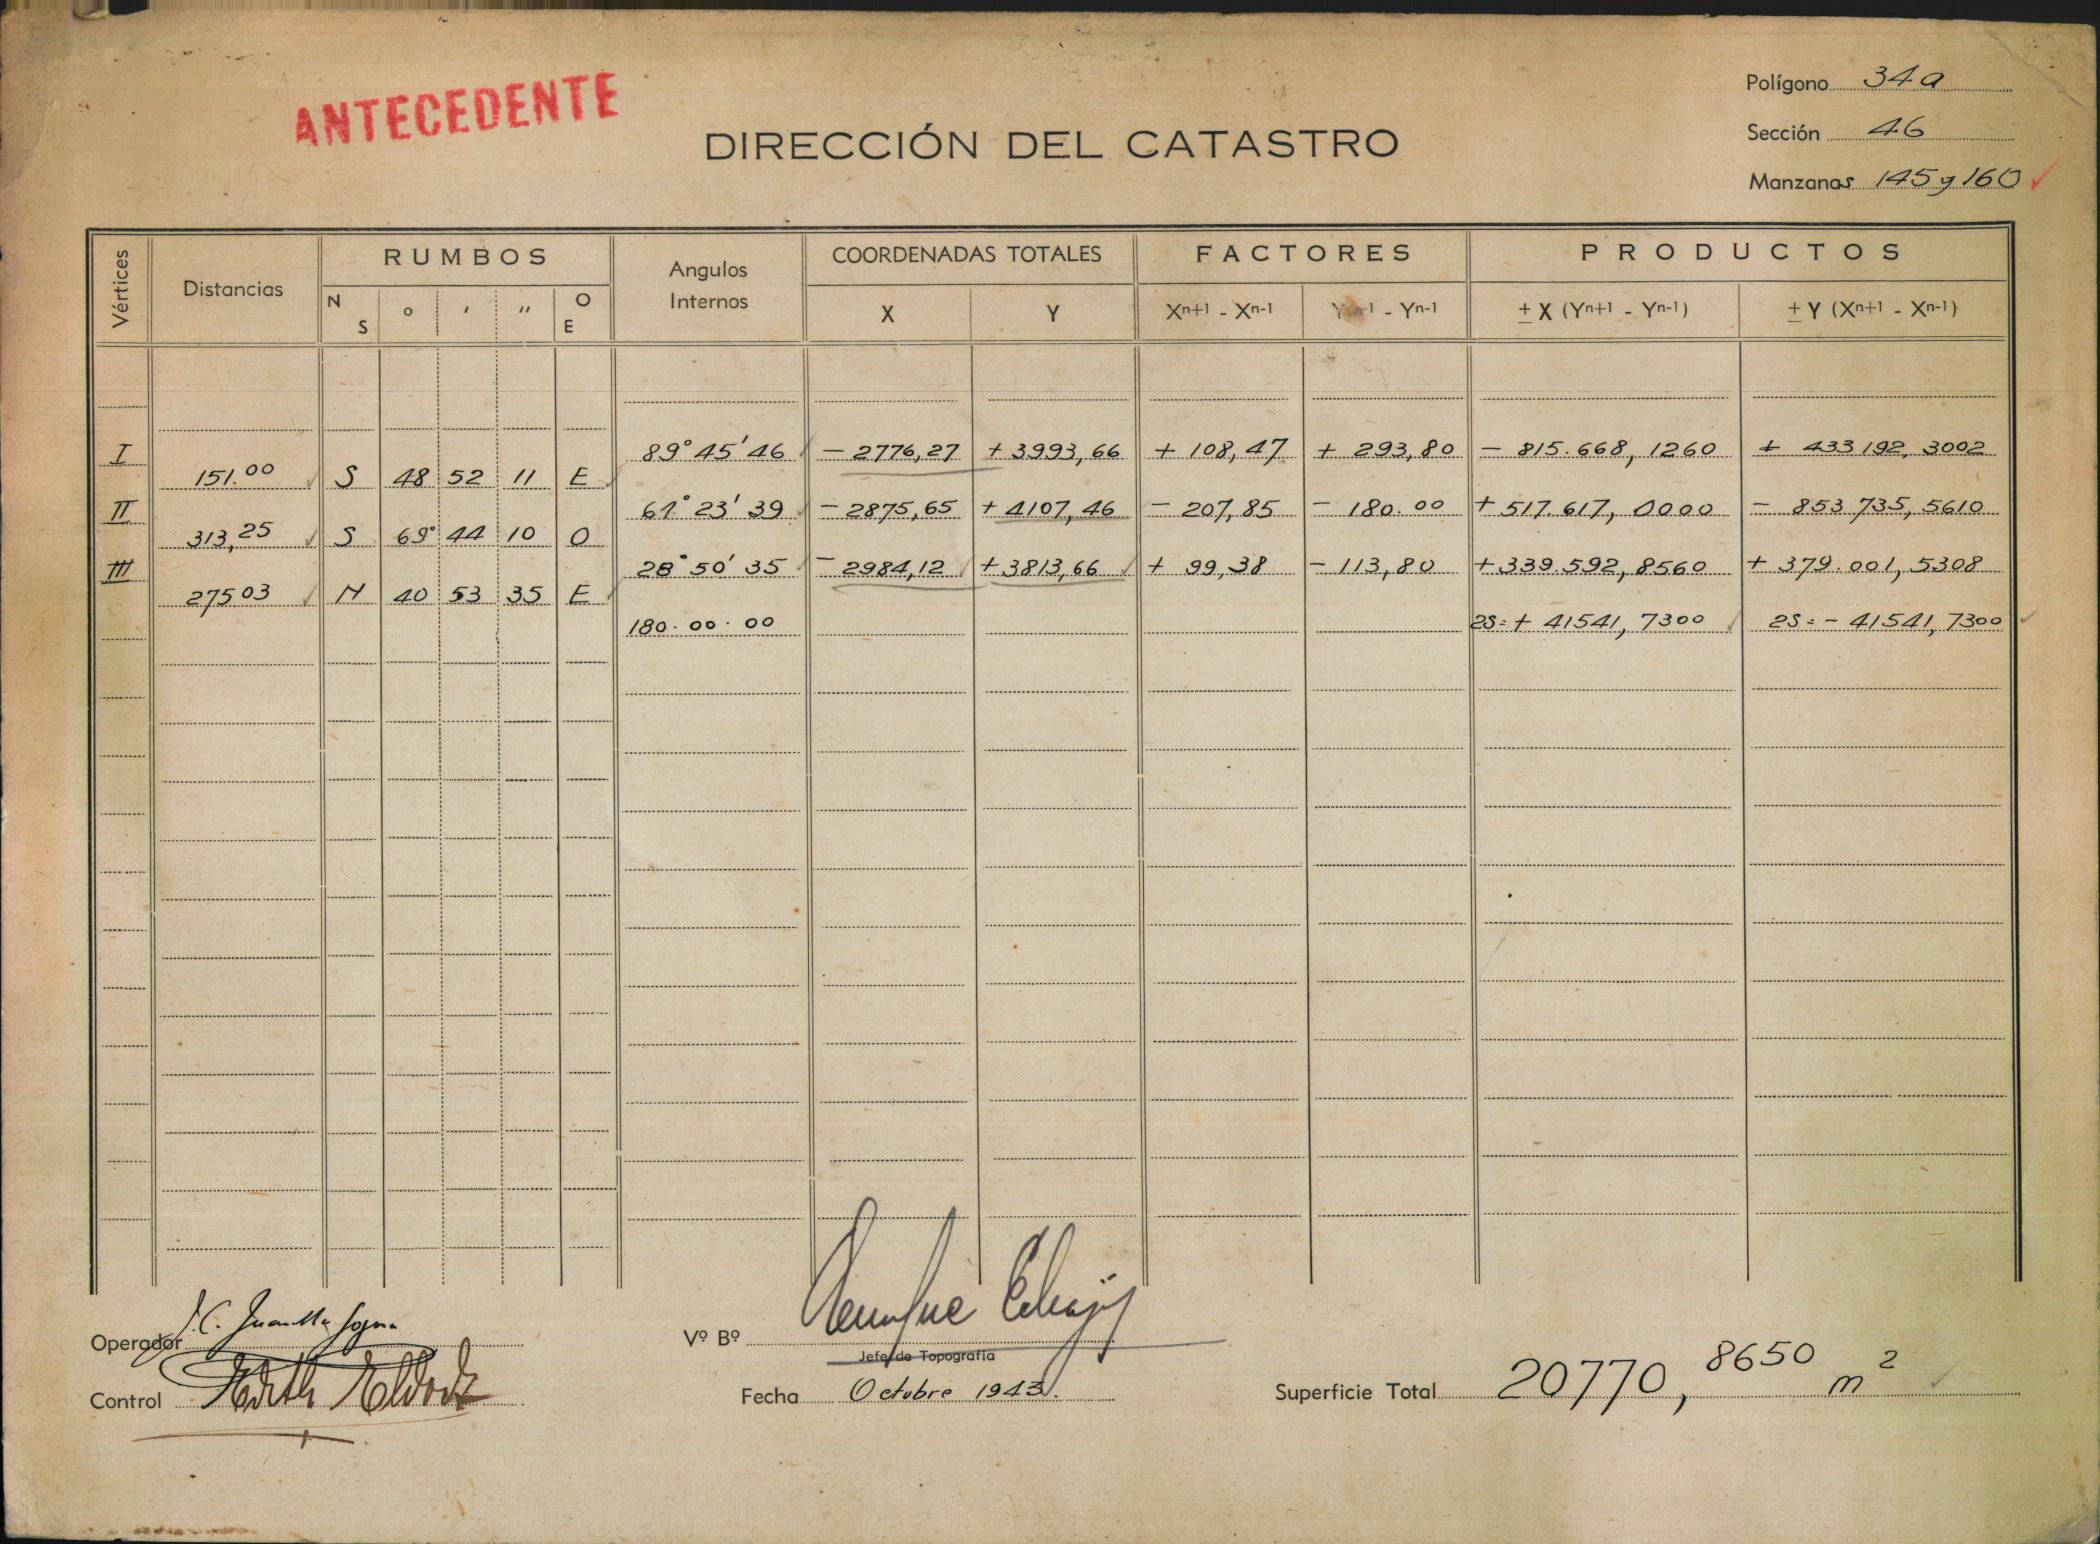 ANTECEDENTE
DIRECCIÓN DEL CATASTRO
Polígono 34a
Sección 46
Manzanas 145 y 160
Vértices Distancias RUMBOS Angulos Internos COORDENADAS TOTALES FACTORES PRODUCTOS
N S ° ' '' O E X Y Xn+1 - Xn-1 - Yn-1 ± X (Yn+1 - Yn-1) ± Y (Xn+1 - Xn-1)
I 89° 45' 46 - 2776,27 + 3993,66 + 108,47 + 293,80 - 815.668,1260 + 433192,3002
151.00 S 48 52 11 E
II 61° 23' 39 - 2875,65 + 4107,46 - 207,85 - 180.00 + 517.617,0000 - 853735,5610
313,25 S 69° 44 10 O
III 28° 50' 35 - 2984,12 + 3813,66 + 99,38 - 113,80 + 339.592,8560 + 379.001,5308
27503 N 40 53 35 E
180.00.00 2S=+ 41541,7300 2S=- 41541,7300
Operador
Control
Vº Bº
Jefe de Topografía
Fecha Octubre 1943.
Superficie Total 20770,8650 m2